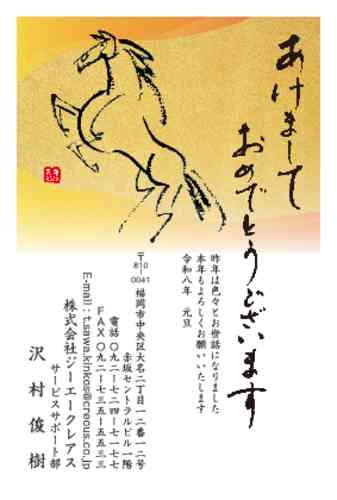 あけまして
おめでとうございます
昨年は色々とお世話になりました
本年もよろしくお願いいたします
令和八年 元旦
〒810-0041 福岡市中央区大名二丁目一二番一二号
赤坂セントラルビル一階
電話 〇九二-七二四-七一七七
FAX 〇九二-七三五-五五三三
E-mail:t.sawa.kinkos@creous.co.jp
株式会社ジーエークレアス
サービスサポート部
沢村俊樹